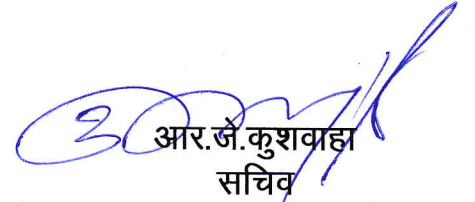 आर.जे.कुशवाहा
सचिव